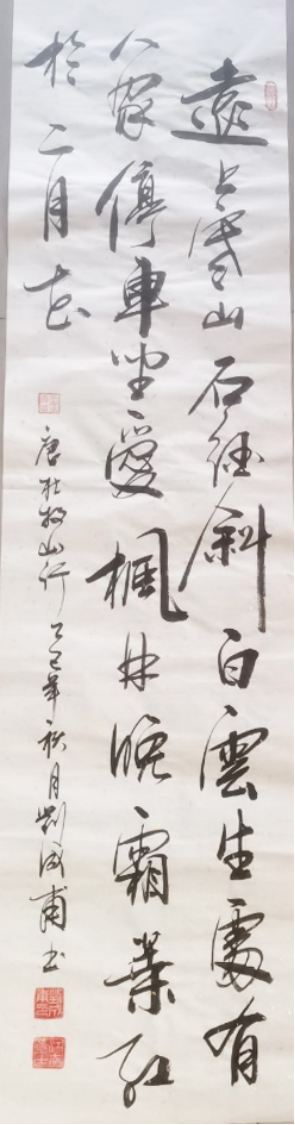 遠上寒山石径斜白雲生處有
人家停車坐愛楓林晚霜葉紅
於二月花
唐杜牧山行乙巳年秋月劉成甫书